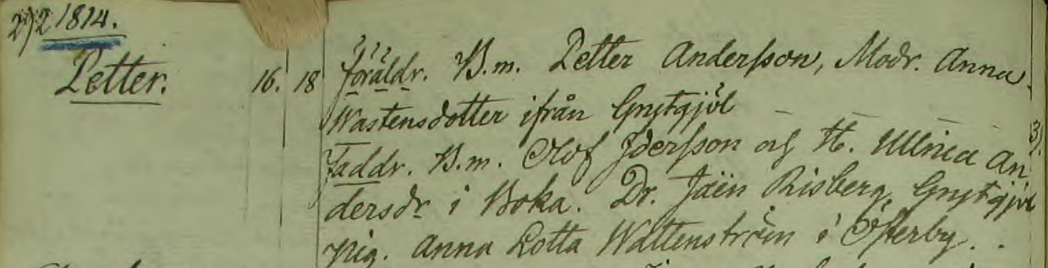 2/2 1814.
Petter. 16. 18 föräldr. B.m. Petter Andersson, Modr. Anna
Wastensdotter ifrån Gnytgjöl
Faddr. B.m. Olof Jdersson og H. Ullrica An
dersdr i Boka. Dr. Jaën Risberg, Gnytgjöl
pig. Anna Lotta Wattenström i Österby.